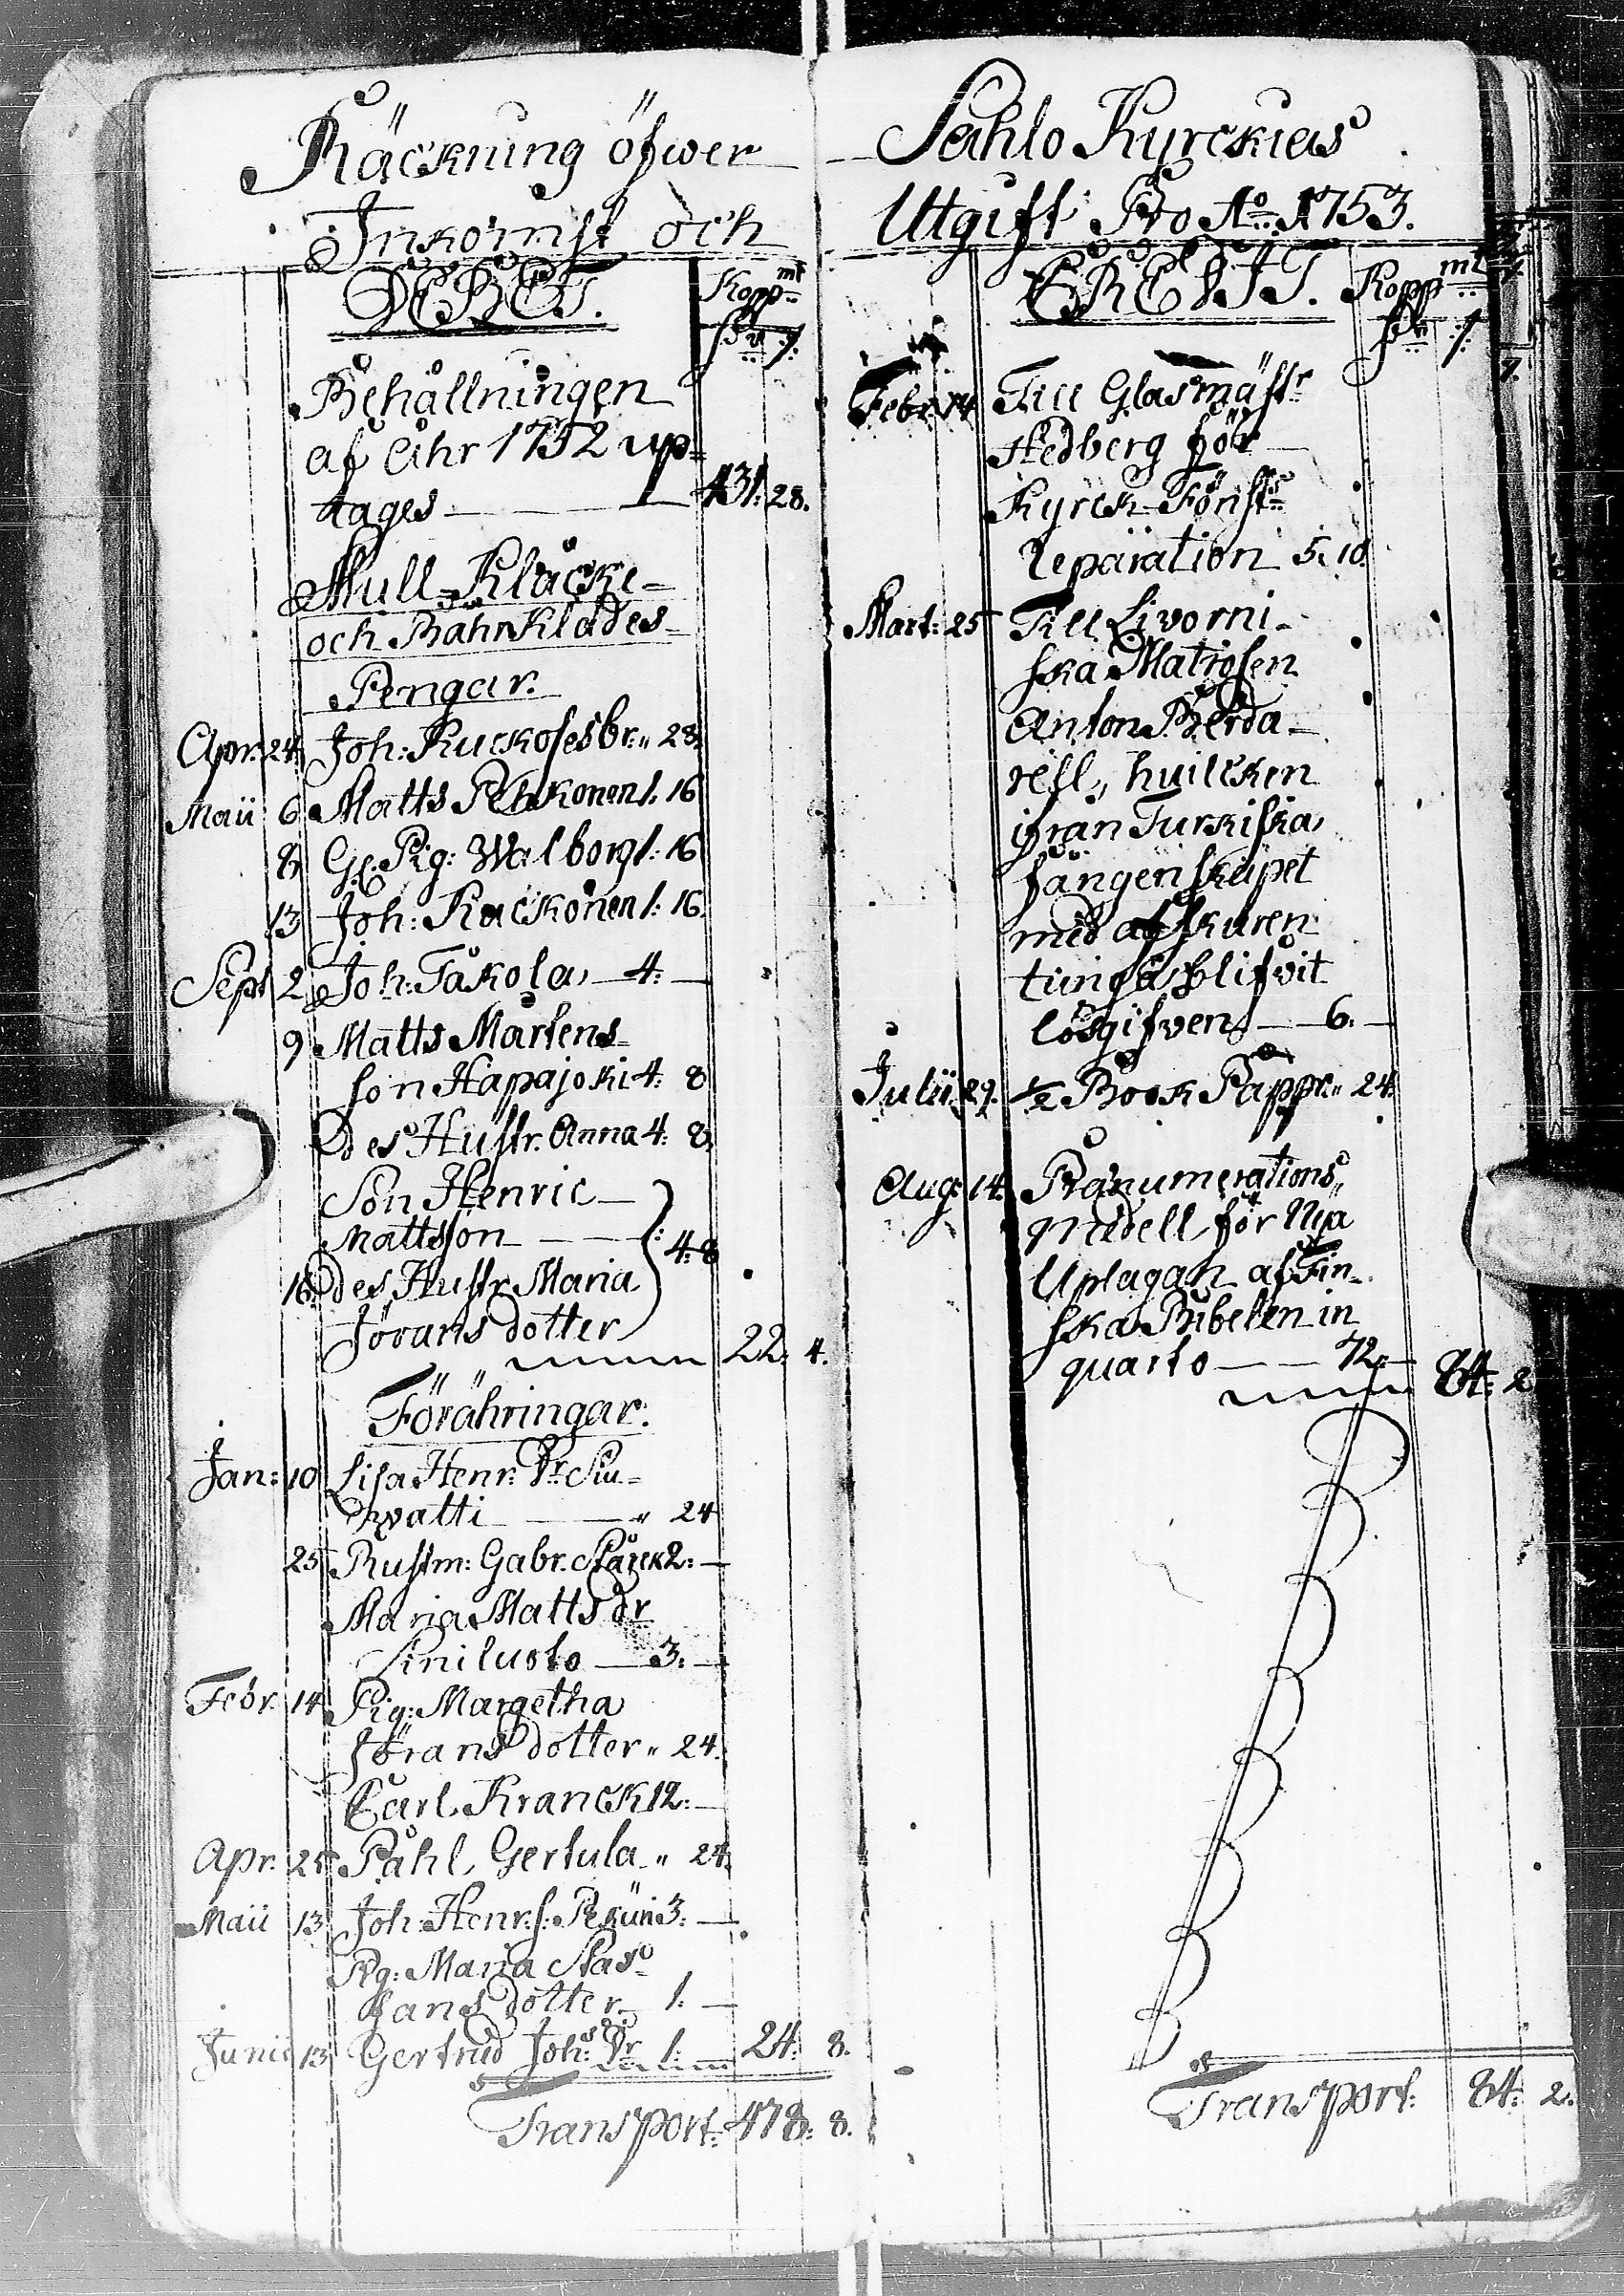 Räckning öfwer
Inkomst och
DEBET.
Kopp mt
dlr :/:
Behållningen
af åhr 1752 up=
tages — 431: 28.
Mull-Klåcke-
och Båhrklädes-
Pengar.
Apr. 24. Joh: Kuckosesbr: " 28.
Maii 6 Matts Pehkonen 1: 16
8 Gl. Pig: Walborg 1: 16
13 Joh: Kackonen 1: 16.
Sept 2 Joh: Tåkola — 4: —
9 Matts Mårtens-
son Hapajoki 4: 8
Des Hustr. Anna 4: 8.
Son Henric —
Mattsson — — 4: 8
16. Des Hustr. Maria
Jörans dotter
22: 4.
Förähringar:
Jan: 10 Lisa Henr: Dr Siu-
watti — " 24
25 Rustm: Gabr. Stårck 2: —
Maria Matts dr
Siniluoto — 3: —
Febr. 14 Pig: Margetha
Jörans dotter " 24.
Carl Kranck 12: —
Apr. 25 Påhl Gertula " 24.
Maii 13 Joh: Henr: s: Pekuri 3: —
Pig: Maria Stas-
fans dotter 1: —
Junii 13 Gertrud Joh: Dr 1: 24: 8.
Transport: 478: 8.
Sahlo Kyrckias
Utgift Pro Ao: 1753.
CREDIT.
Kopp mt
dlr :/:
Febr. 14 Till Glasmäst:
Hedberg för
Kyrck-Fönst:
reparation 5: 10.
Mart: 25 Till Livorni-
ska Matrosen
Anton Berda-
rell, huilcken
ifrån Turkiska
fängenskapet
med afskuren
tunga blifvit
lösgifven — 6: —
Julii 29. ½ Book Papp: " 24.
Aug: 14. Prænumerations
medell för Nya
Uplagan af Fin-
ska Bibelen in
quarto — — 72: —
84: 2
Transport: 84: 2.